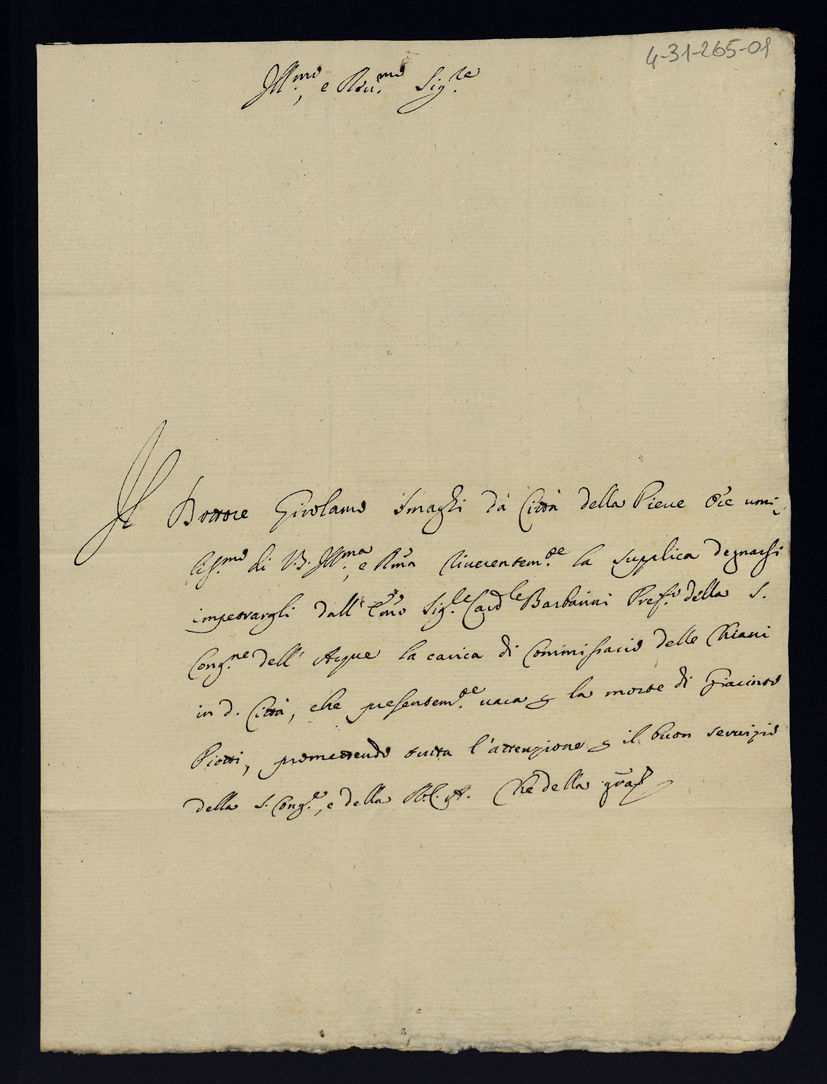 4-31-265-01
Ill.mo, e Rev.mo Sig.re
Il Dottore Girolamo Smaghi da Città della Pieve Ore umi-
liss.mo di V.S. Ill.ma, e Rma riverentem.te la supplica degnarsi
impetrargli dall' Emo Sig.re Card.le Barbarini Pref.o della S.
Cong.ne dell' Acque la carica di Commissario delle Chiani
in d. Città, che presentem.te vaca p la morte di Giacinto
Piotti, promettendo tutta l'attenzione p il buon servizio
della S. Cong.e, e della R.C.A. Che della gra